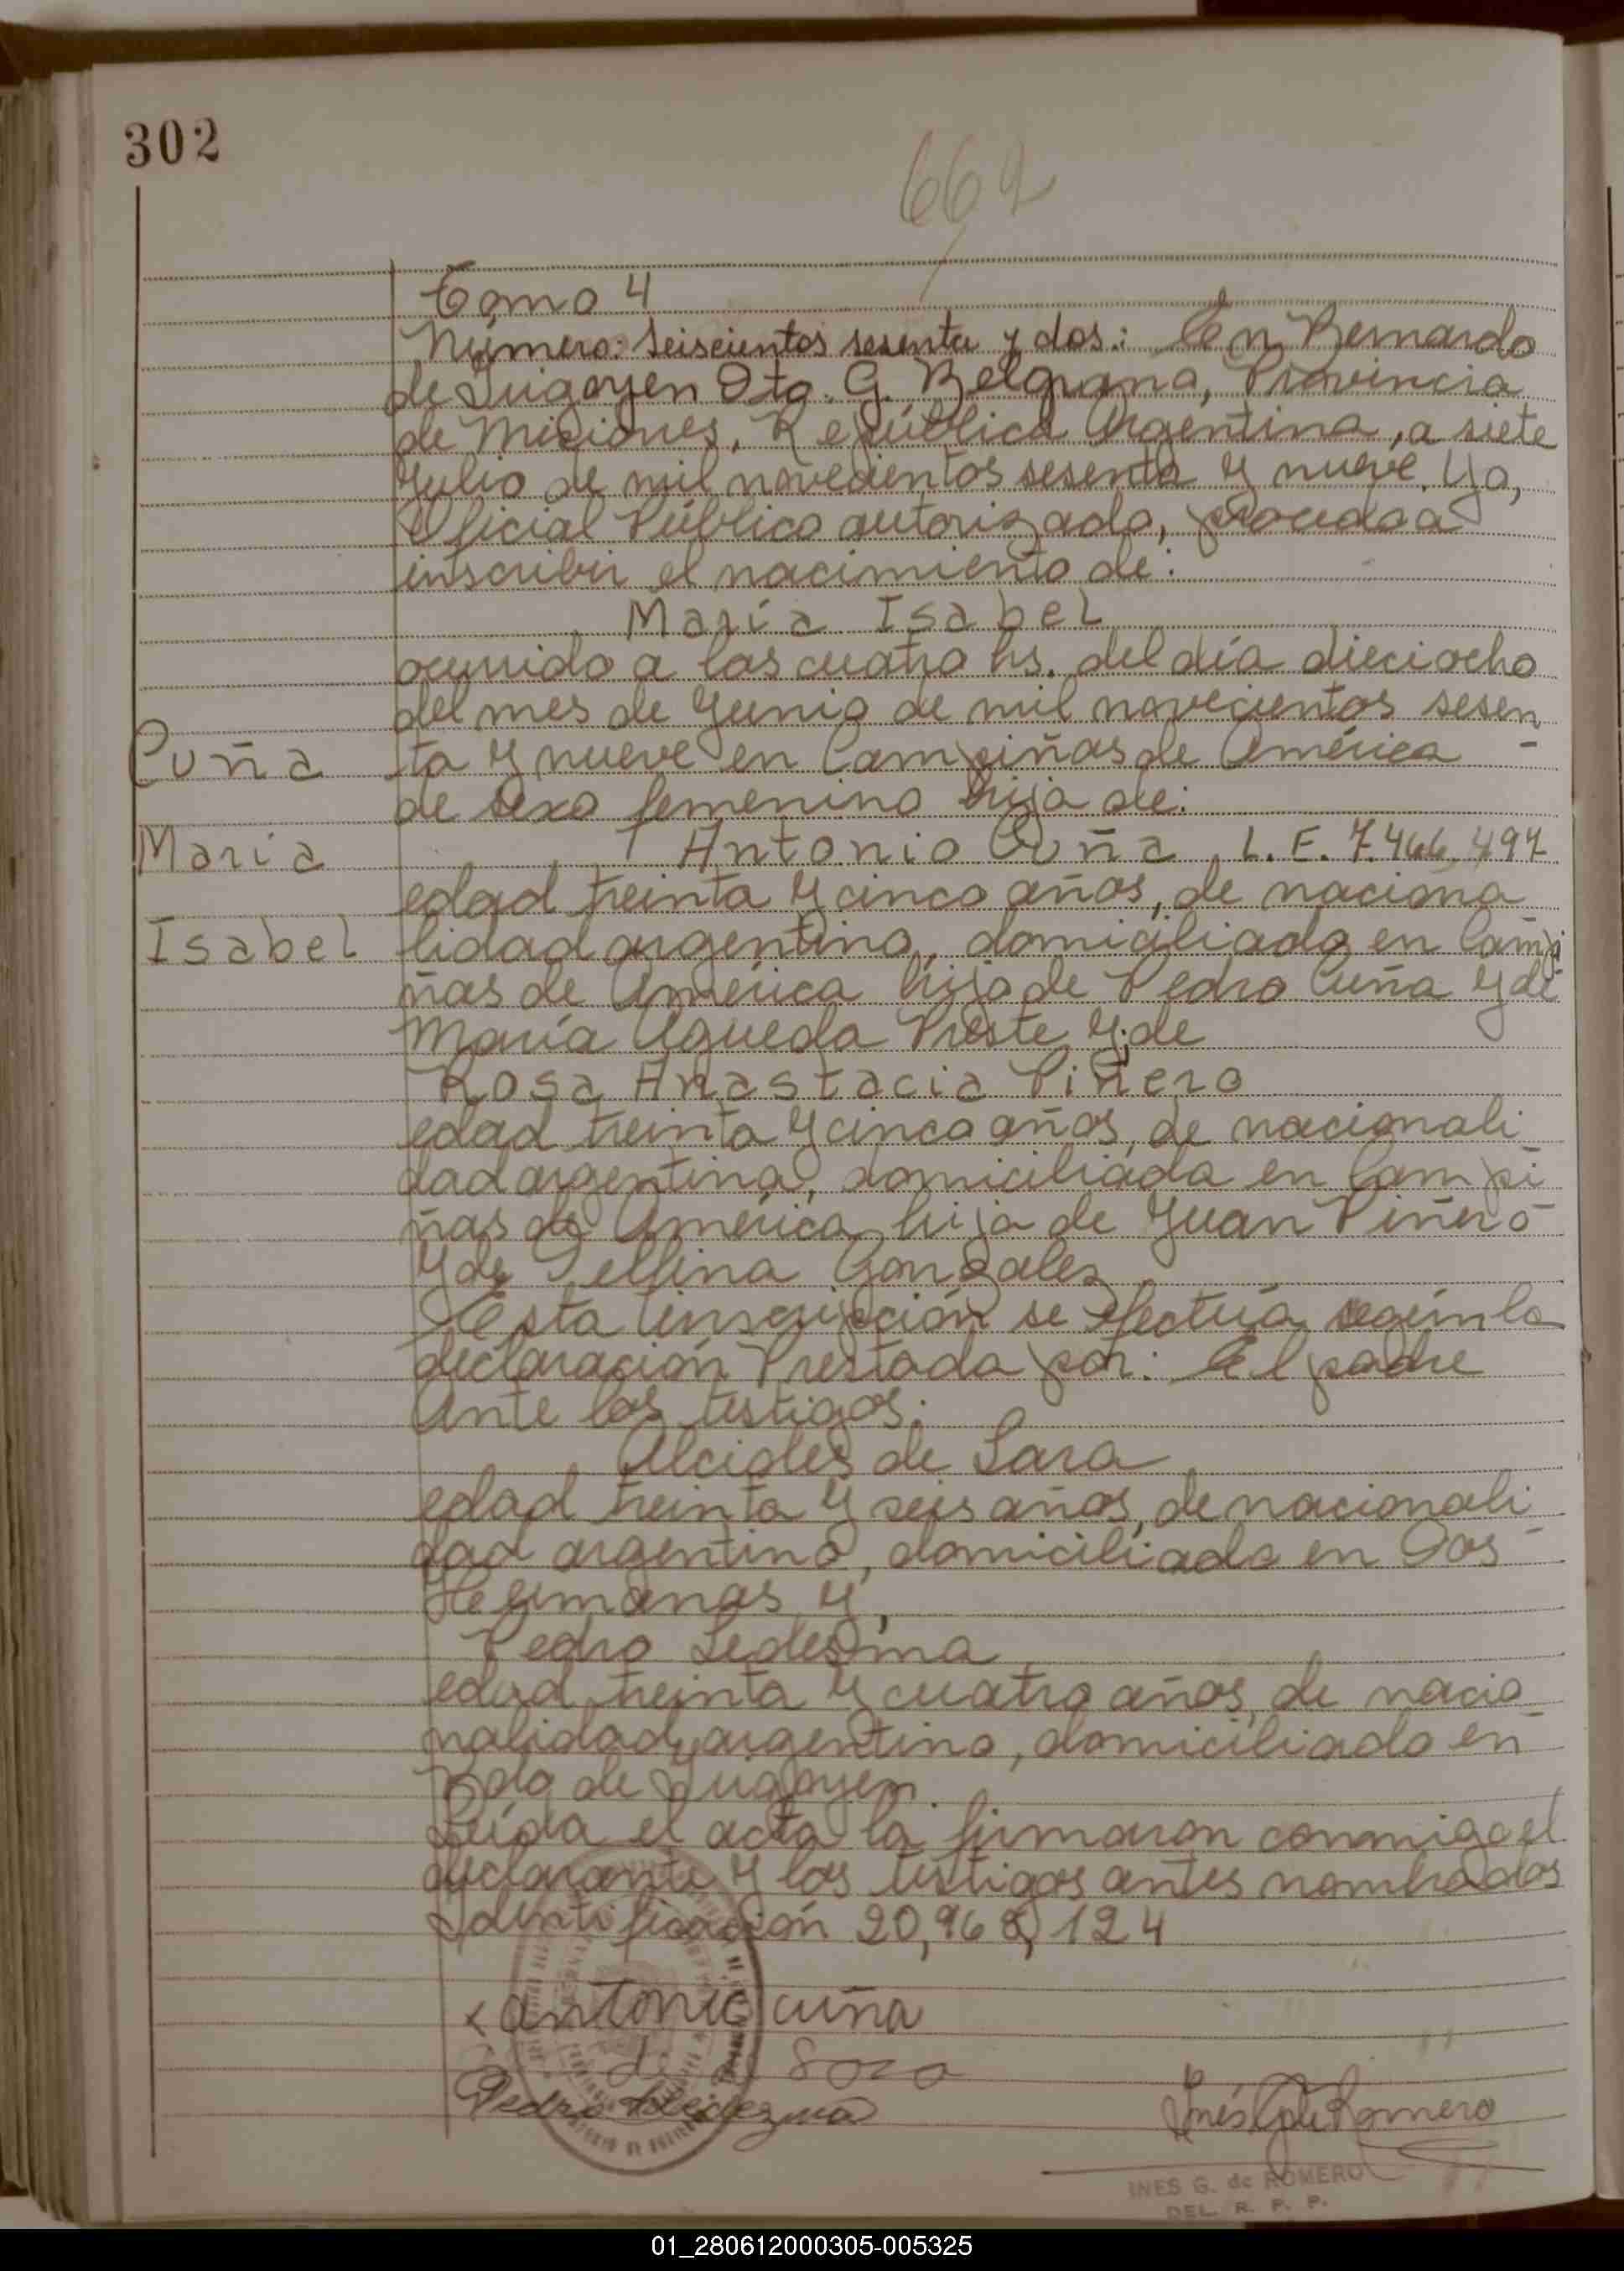 302
662
Tomo 4
Número: Seiscientos sesenta y dos: En Bernardo
de Irigoyen Dto. G. Belgrano, Provincia
de Misiones, República Argentina, a siete
Julio de mil novecientos sesenta y nueve. Yo,
Oficial Público autorizado, procedo a
inscribir el nacimiento de:
María Isabel
ocurrido a las cuatro hs. del día dieciocho
del mes de Junio de mil novecientos sesen
Cuña
ta y nueve en Campiñas de América
de sexo femenino hija de:
María
Antonio Cuña, L. E. 7.466.497
edad treinta y cinco años, de naciona
Isabel
lidad argentino, domiciliado en Campi
ñas de América hijo de Pedro Cuña y de
María Agueda Preste y de
Rosa Anastacia Piñero
edad treinta y cinco años, de nacionali
dad argentina, domiciliada en Campi
ñas de América hija de Juan Piñero
y de Delfina Gonzalez
Esta inscripción se efectúa según la
declaración Prestada por: El padre
Ante los testigos:
Alcides de Lara
edad treinta y seis años, de nacionali
dad argentino, domiciliado en Dos
Hermanas y,
Pedro Ledesma
edad treinta y cuatro años, de nacio
nalidad argentino, domiciliado en
Bdo de Irigoyen.
Leída el acta la firmaron conmigo el
declarante y los testigos antes nombrados
Identificación 20,968,124
x antonio cuña
de
Pedro Ledezma
Inés G de Romero
INES G. de ROMERO
DEL. R. P. P.
01_280612000305-005325